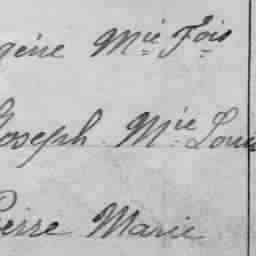 gène Mie Fois
Joseph Mie Louis
Pierre Marie